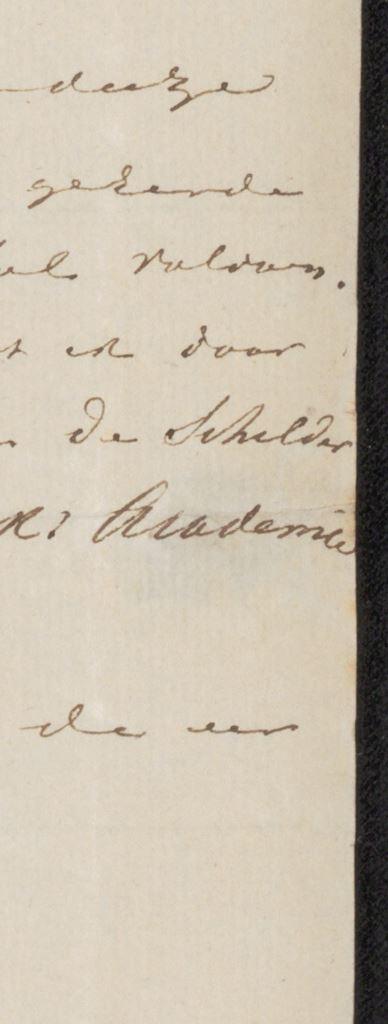 deeze
gekeerde
voldoen.
ik door
de Schilder
K: Academie
de eer